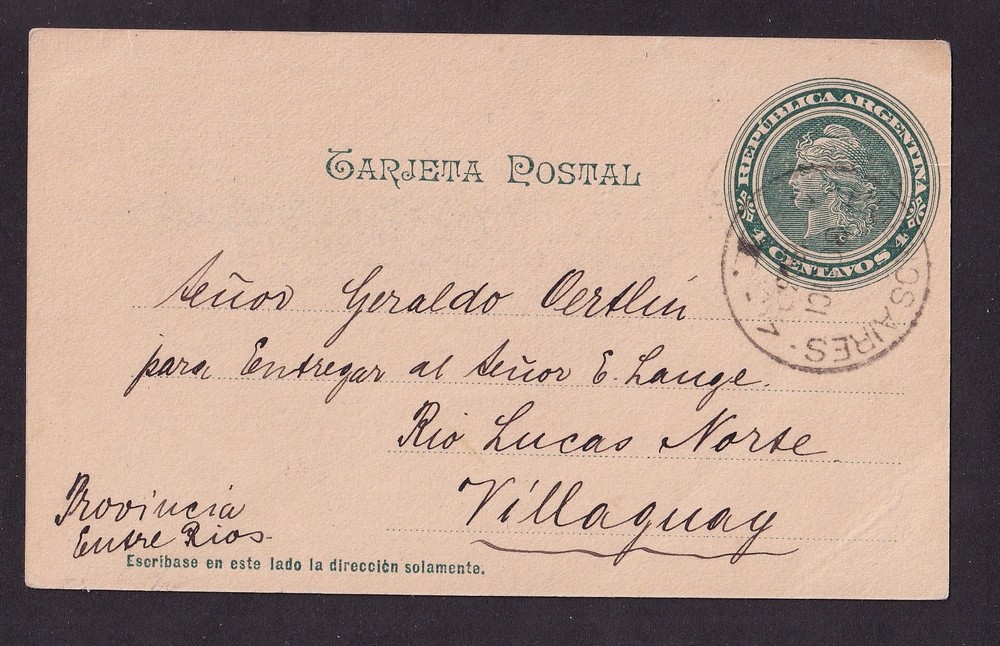 REPÚBLICA ARGENTINA
4 CENTAVOS 4
TARJETA POSTAL
OS AIRES
Señor Geraldo Oertlin
para Entregar al Señor E. Lange.
Rio Lucas Norte
Villaguay
Provincia
Entre Rios.
Escríbase en este lado la dirección solamente.